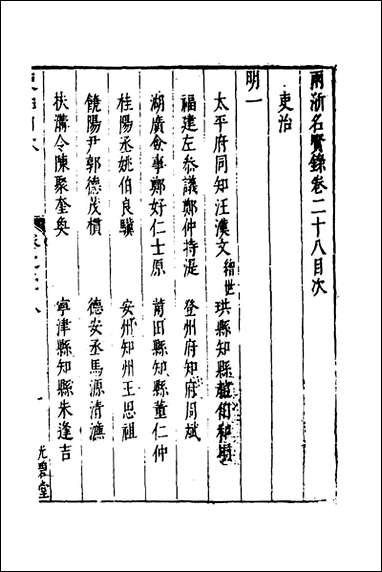 兩浙名賢錄卷二十八目次
吏治
明一
太平府同知汪漢文 珙縣知縣
福建左叅議鄭仲持湜 登州府知府周斌
湖廣僉事鄭好仁士原 莆田縣知縣董仁仲
桂陽丞姚伯良驥 安州知州王思祖
饒陽尹郭德茂槓 德安丞馬源清濂
扶溝令陳聚奎奐 寧津縣知縣朱逢吉
光碧堂